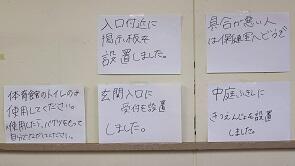 入口付近に
掲示板を
設置しました。
具合が悪い人
は保健室へどうぞ
体育館のトイレのみ
使用してください。
使用したら、バケツをもって
玄関入口に
受付を設置
しました。
中庭ふきんに
きつえんじょを設置
しました。